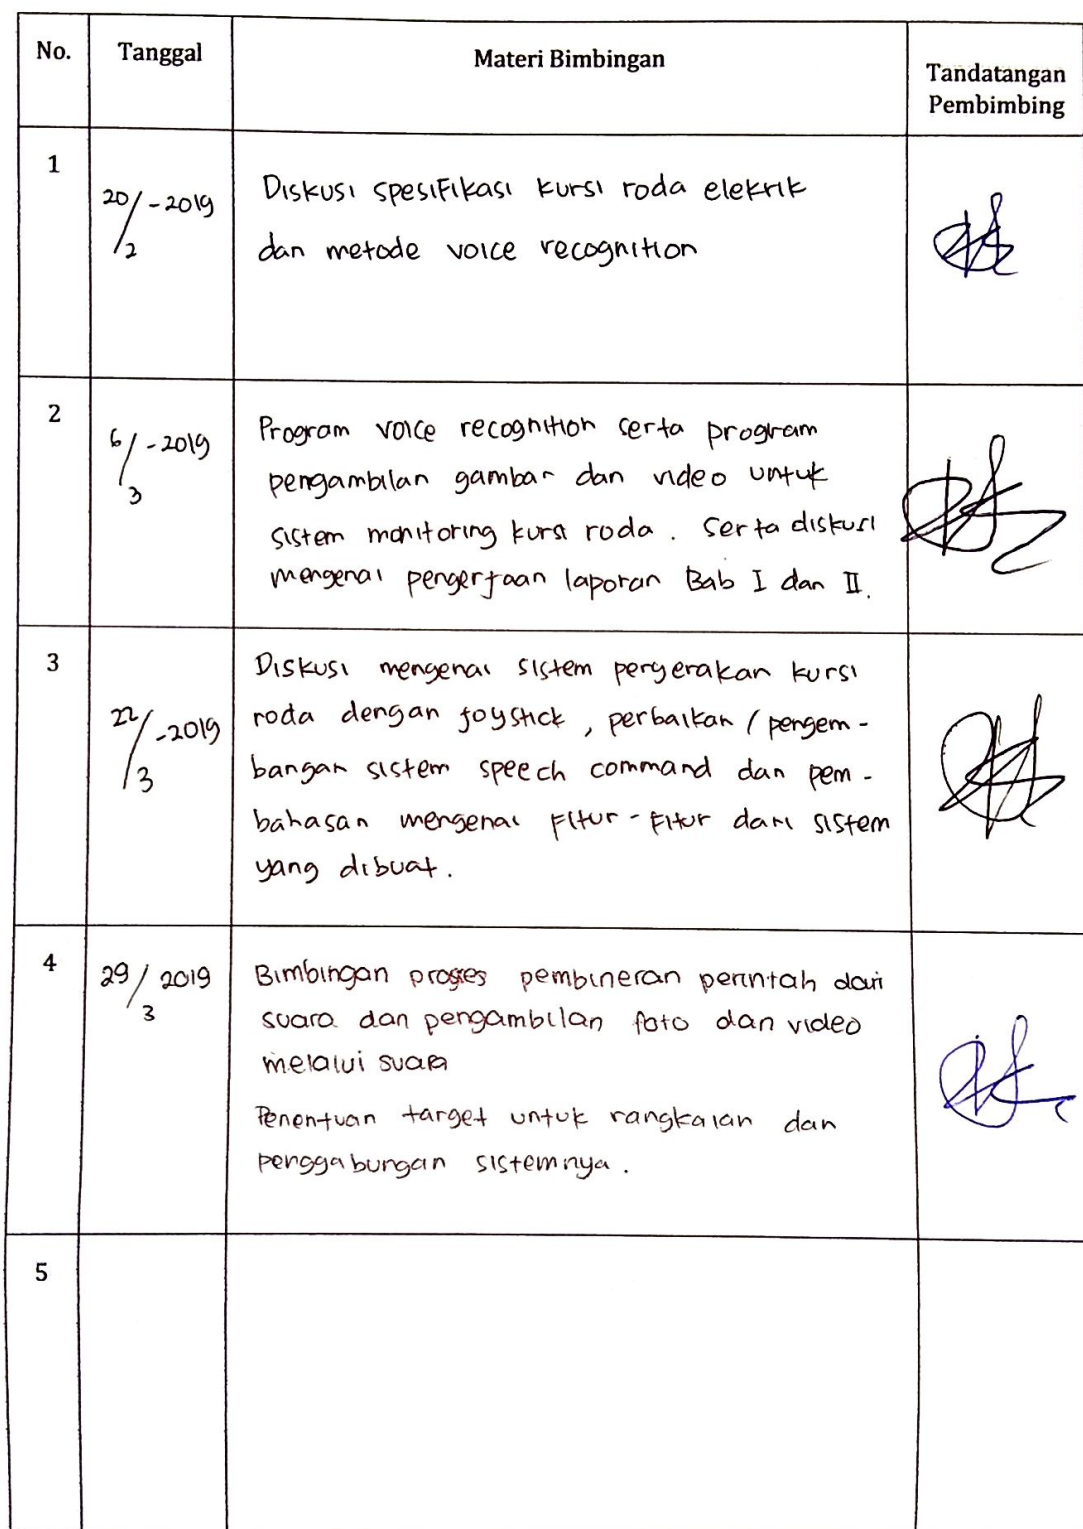 No. Tanggal Materi Bimbingan Tandatangan
Pembimbing
1
20/2-2019
Diskusi spesifikasi kursi roda elekrik
dan metode voice recognition
2
6/3-2019
Program voice recognition serta program
pengambilan gambar dan video untuk
sistem monitoring kursi roda. Serta diskusi
mengenai pengerjaan laporan Bab I dan II.
3
22/3-2019
Diskusi mengenai sistem pergerakan kursi
roda dengan joystick, perbaikan / pengem-
bangan sistem speech command dan pem-
bahasan mengenai fitur-fitur dari sistem
yang dibuat.
4
29/3 2019
Bimbingan proses pembineran perintah dari
suara dan pengambilan foto dan video
melalui suara
Penentuan target untuk rangkaian dan
penggabungan sistemnya.
5